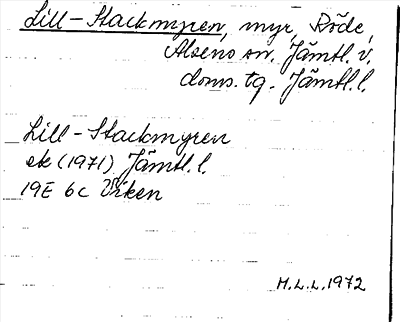 Lill-Stackmyren, myr, Röde,
Alsens sn. Jämtl. v.
doms. tg. Jämtl. l.
Lill-Stackmyren
ek (1971) Jämtl. l.
19E 6c Ytterån